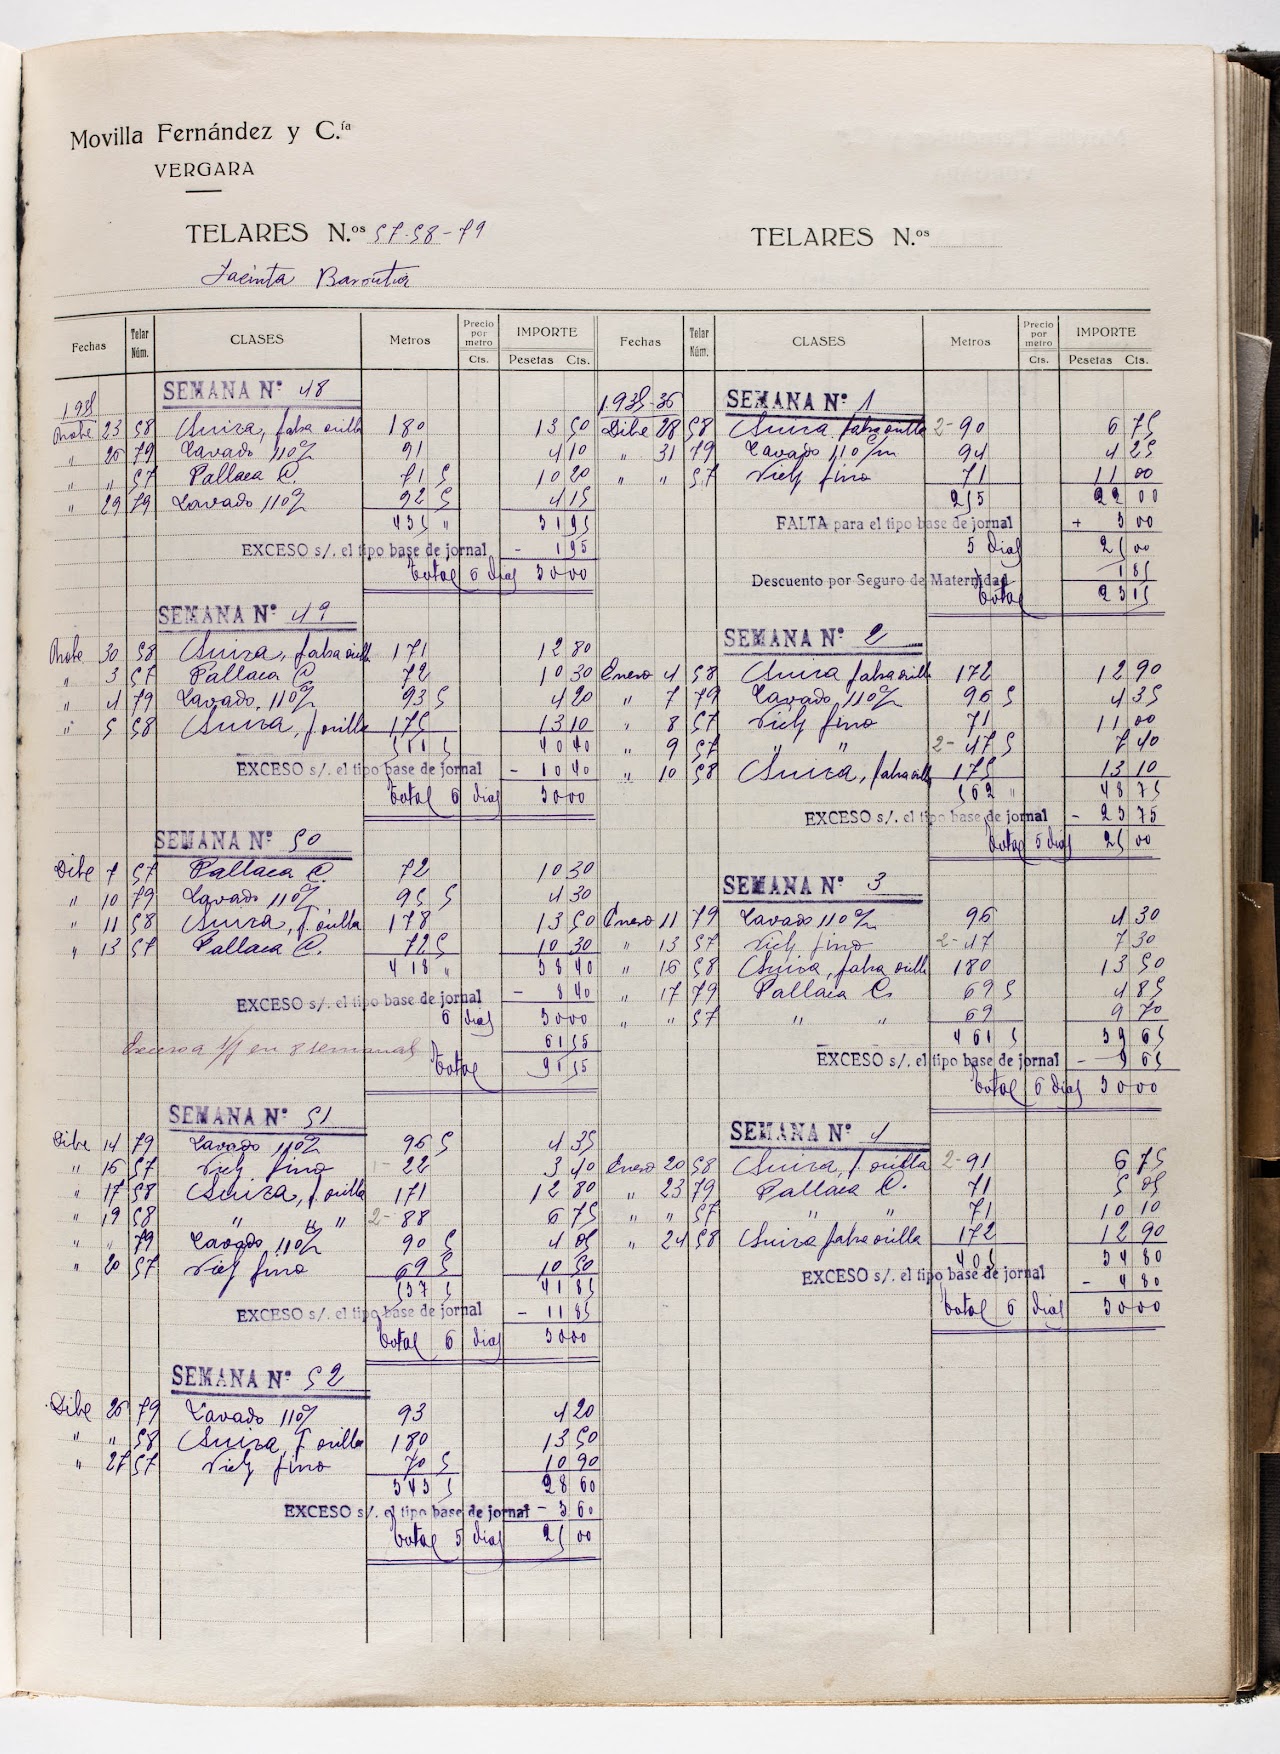 Movilla Fernández y C.ía
VERGARA
TELARES N.os 57-58-79
TELARES N.os
Jacinta
Fechas Telar Núm. CLASES Metros Precio por metro Cts. IMPORTE Pesetas Cts.
Fechas Telar Núm. CLASES Metros Precio por metro Cts. IMPORTE Pesetas Cts.
SEMANA N° 48
1935
23 58 Suiza, falsa orilla 180 13 50
" 26 79 Lavado 110% 91 4 10
" " 57 Pallaca C. 71 5 10 20
" 29 79 Lavado 110% 92 5 4 15
435 " 31 95
EXCESO s/. el tipo base de jornal - 1 95
Total 6 dias 30 00
SEMANA N° 49
30 58 Suiza, falsa orilla 171 12 80
" 3 57 Pallaca C. 72 10 30
" 4 79 Lavado 110% 93 5 4 20
" 5 58 Suiza, f. orilla 175 13 10
511 5 40 40
EXCESO s/. el tipo base de jornal - 10 40
Total 6 dias 30 00
SEMANA N° 50
Dibe 7 57 Pallaca C. 72 10 30
" 10 79 Lavado 110% 95 5 4 30
" 11 58 Suiza, f. orilla 178 13 50
" 13 57 Pallaca C. 72 5 10 30
418 " 38 40
EXCESO s/. el tipo base de jornal - 8 40
6 dias 30 00
en 8 semanas 61 55
Total 91 55
SEMANA N° 51
Dibe 14 79 Lavado 110% 96 5 4 35
" 16 57 Vichy fino 22 3 40
" 17 58 Suiza, f. orilla 171 12 80
" 19 58 " " " 2- 88 6 75
" " 79 Lavado 110% 90 5 4 05
" 20 57 Vichy fino 69 5 10 50
537 5 41 85
EXCESO s/. el tipo base de jornal - 11 85
Total 6 dias 30 00
SEMANA N° 52
Dibe 26 79 Lavado 110% 93 4 20
" " 58 Suiza, f. orilla 180 13 50
" 27 57 Vichy fino 70 5 10 90
343 5 28 60
EXCESO s/. el tipo base de jornal - 3 60
Total 5 dias 25 00
SEMANA N° 1
1935-36
Dibe 28 58 Suiza, falsa orilla 2- 90 6 75
" 31 79 Lavado 110% 94 4 25
" " 57 Vichy fino 71 11 00
255 22 00
FALTA para el tipo base de jornal + 3 00
5 dias 25 00
Descuento por Seguro de Maternidad 1 85
Total 23 15
SEMANA N° 2
Enero 4 58 Suiza, falsa orilla 172 12 90
" 7 79 Lavado 110% 96 5 4 35
" 8 57 Vichy fino 71 11 00
" 9 57 " " 2- 47 5 7 40
" 10 58 Suiza, falsa orilla 175 13 10
562 " 48 75
EXCESO s/. el tipo base de jornal - 23 75
Total 5 dias 25 00
SEMANA N° 3
Enero 11 79 Lavado 110% 96 4 30
" 13 57 Vichy fino 2- 47 7 30
" 16 58 Suiza, falsa orilla 180 13 50
" 17 79 Pallaca C. 69 5 4 85
" " 57 " " 69 9 70
461 5 39 65
EXCESO s/. el tipo base de jornal - 9 65
Total 6 dias 30 00
SEMANA N° 4
Enero 20 58 Suiza, f. orilla 2- 91 6 75
" 23 79 Pallaca C. 71 5 05
" " 57 " " 71 10 10
" 24 58 Suiza falsa orilla 172 12 90
405 34 80
EXCESO s/. el tipo base de jornal - 4 80
Total 6 dias 30 00